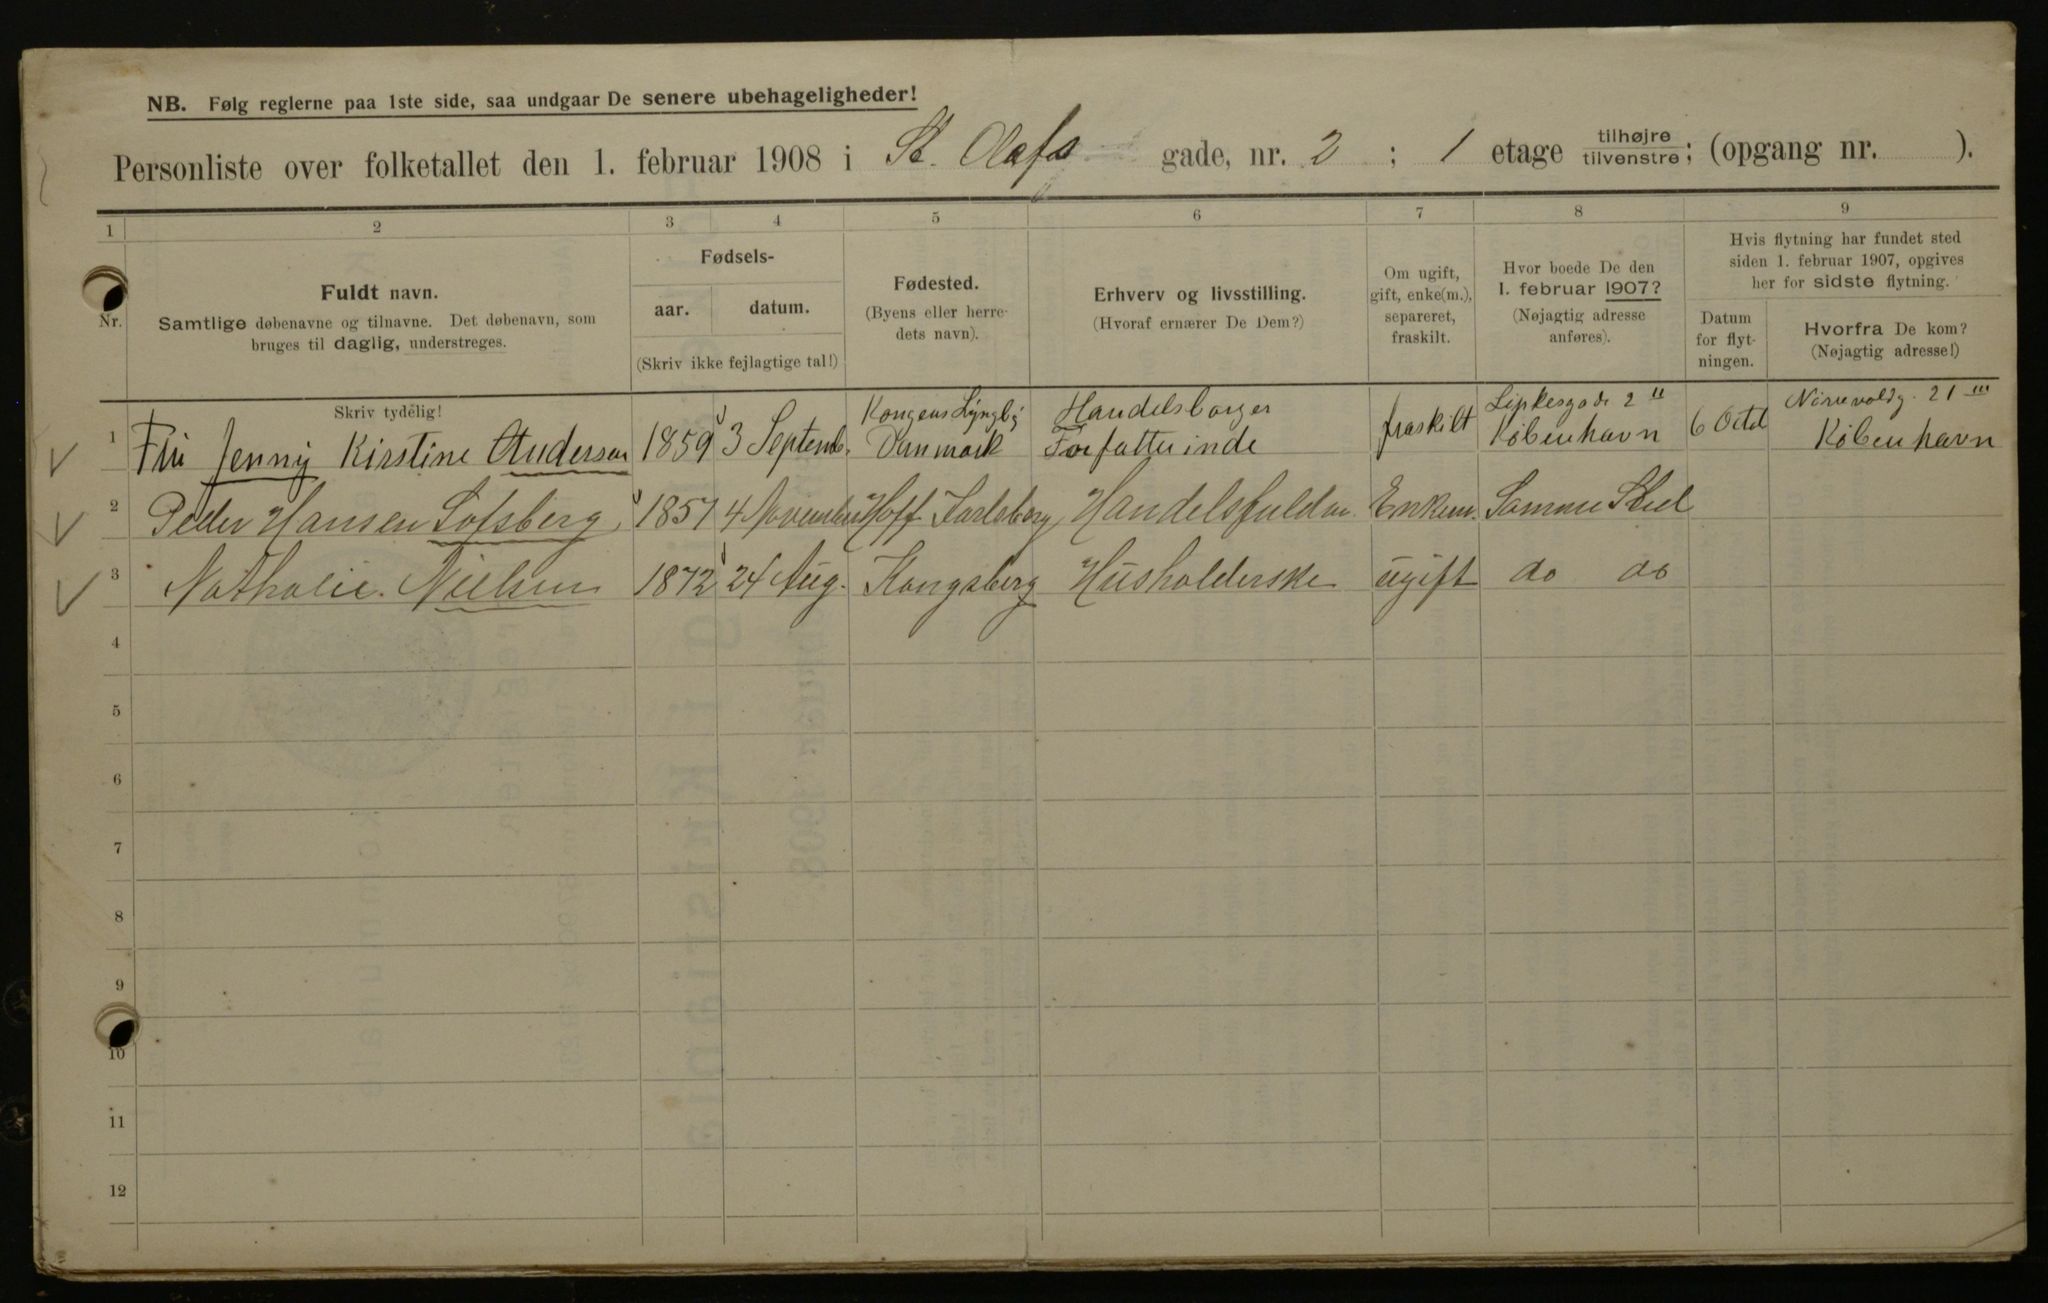 NB. Følg reglerne paa 1ste side, saa undgaar De senere ubehageligheder!
Personliste over folketallet den 1. februar 1908 i St. Olafs gade, nr. 2 ; 1 etage tilhøjre / tilvenstre ; (opgang nr. ).
1 2 3 4 5 6 7 8 9
Nr.
Fuldt navn.
Samtlige døbenavne og tilnavne. Det døbenavn, som
bruges til daglig, understreges.
Fødsels-
aar. datum.
(Skriv ikke fejlagtige tal!)
Fødested.
(Byens eller herre-
dets navn).
Erhverv og livsstilling.
(Hvoraf ernærer De Dem?)
Om ugift,
gift, enke(m.),
separeret,
fraskilt.
Hvor boede De den
1. februar 1907?
(Nøjagtig adresse
anføres).
Hvis flytning har fundet sted
siden 1. februar 1907, opgives
her for sidste flytning.
Datum
for flyt-
ningen.
Hvorfra De kom?
(Nøjagtig adresse!)
Skriv tydelig!
Kongens Lyngby Handelsborger 2 II 21 III
1 Jenny Kirstine Anderson 1859 3 Septemb. Danmark Forfatterinde fraskilt København 6 Octd København
2 Peder Hansen Lofsberg 1857 4 November Hoff Jarlsberg Enkem. Samme Sted
3 Nathalie Nielsen 1872 24 Aug. Kongsberg Husholderske ugift do do
4
5
6
7
8
9
10
11
12